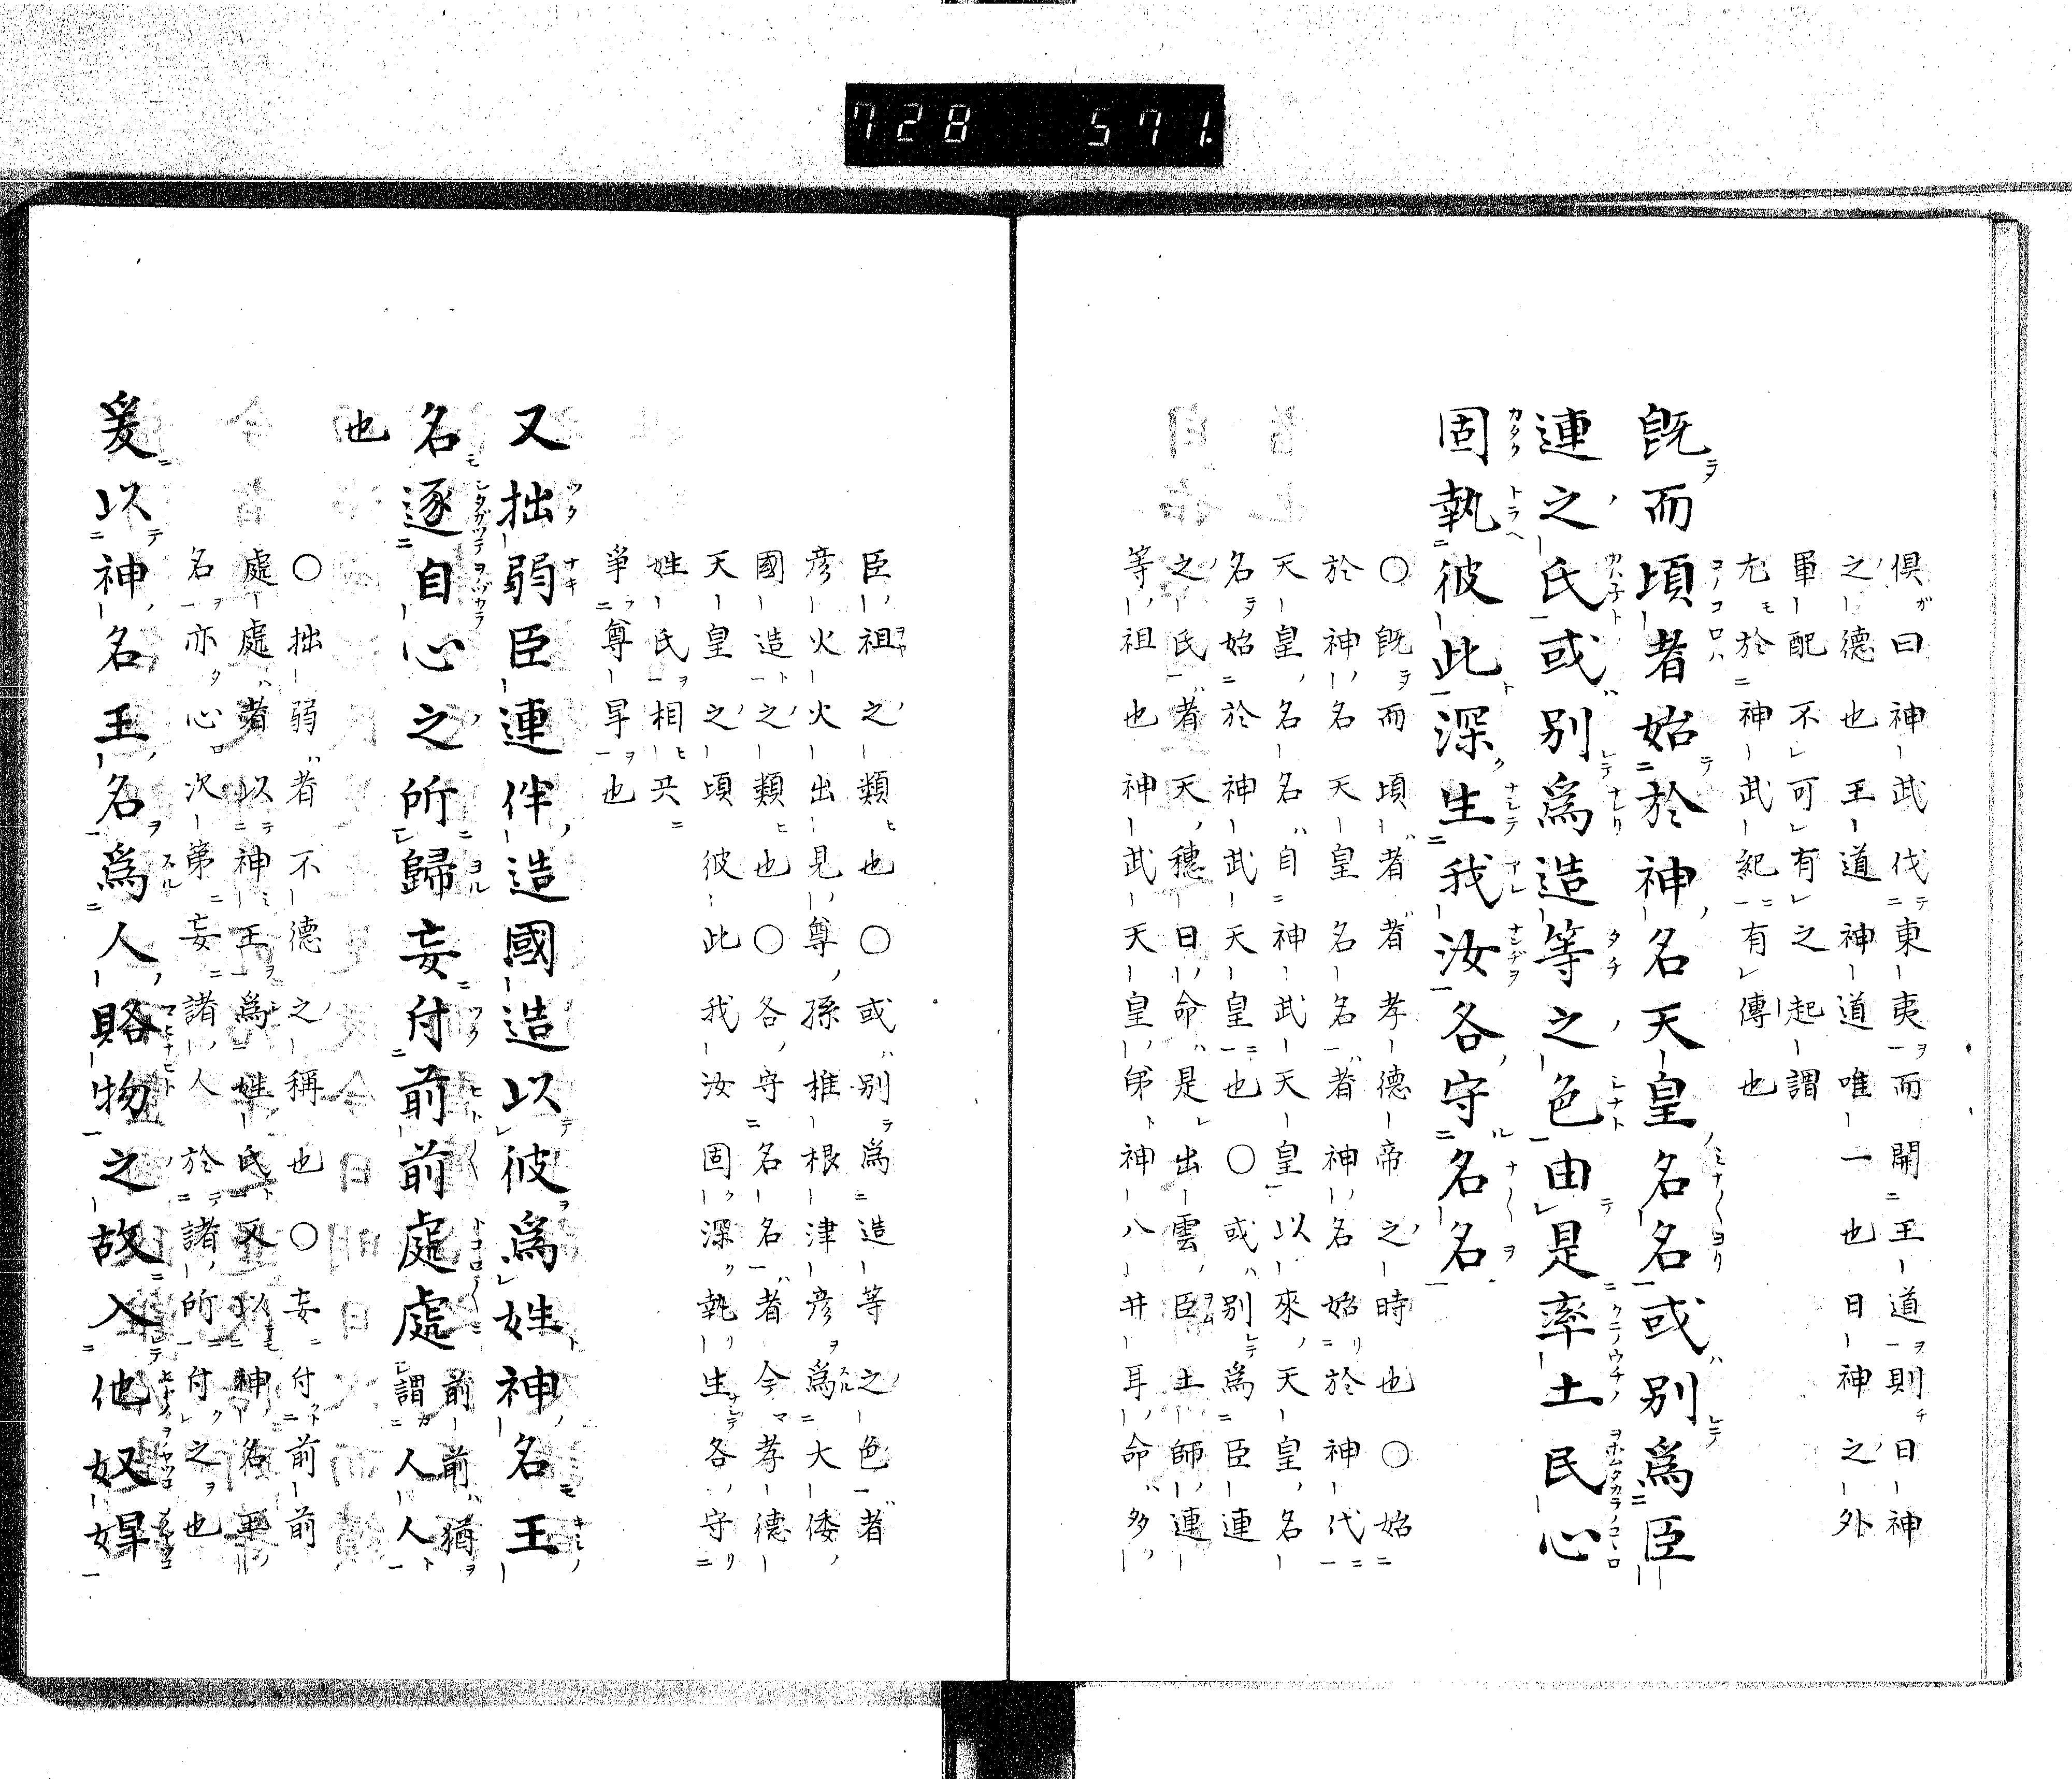 728 571.
倶曰神武伐東夷而開王道則日神
之德也王道神道唯一也日神之外
軍配不可有之起謂
尤於神武紀有傳也
旣而頃者始於神名天皇名名或別爲臣
連之氏或別爲造等之色由是率土民心
固執彼此深生我汝各守名名
○旣而頃者者孝德帝之時也○始
於神名天皇名名者神名始於神代
天皇名名自神武天皇以來天皇名
名始於神武天皇也○或別爲臣連
之氏者天穗日命是出雲臣土師連
等祖也神武天皇弟神八井耳命多
臣祖之類也○或別爲造等之色者
彦火火出見尊孫椎根津彦爲大倭
國造之類也○各守名名者今孝德
天皇之頃彼此我汝固深執生各守
姓氏相共
爭尊卑也
又拙弱臣連伴造國造以彼爲姓神名王
名逐自心之所歸妄付前前處處前前猶謂人人
也
○拙弱者不德之稱也○妄付前前
處處者以神王爲姓氏又以神名王
名亦心次第妄諸人於諸所付之也
爰以神名王名爲人賂物之故入他奴婢